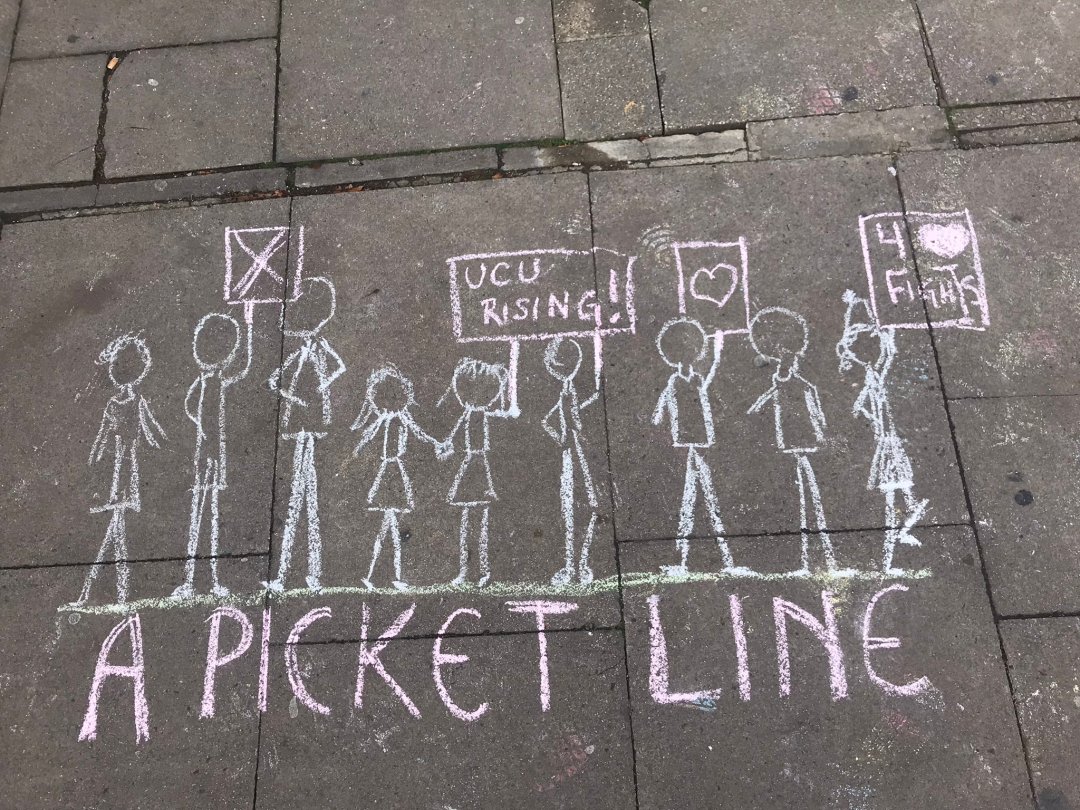 UCU
RISING!
4 ♥
FIGHTS
A PICKET LINE